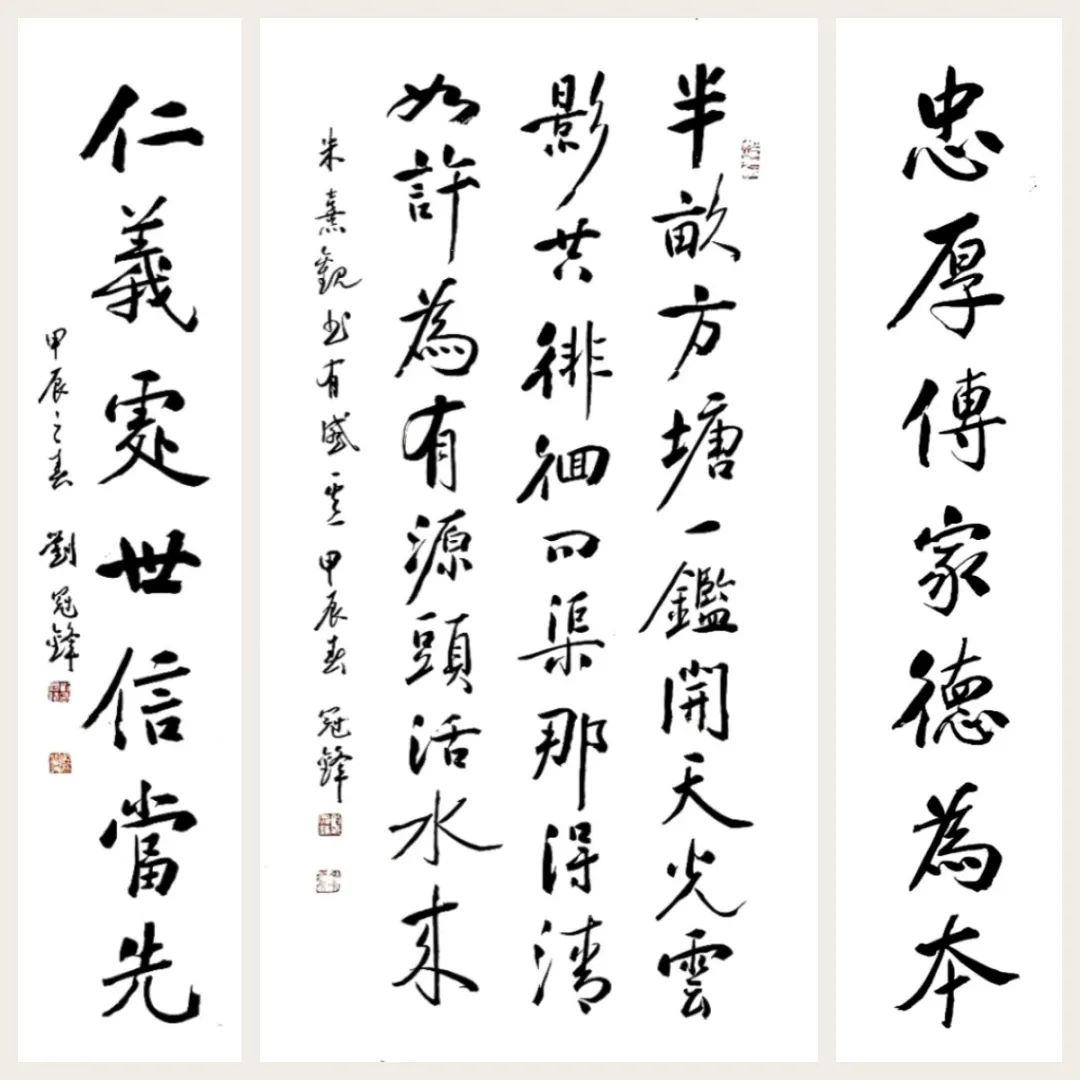 忠厚傳家德為本
半畝方塘一鑑開天光雲
影共徘徊问渠那得清
如許為有源頭活水來
朱熹觀书有感 甲辰春 冠鋒
仁義處世信當先
甲辰之春 劉冠鋒